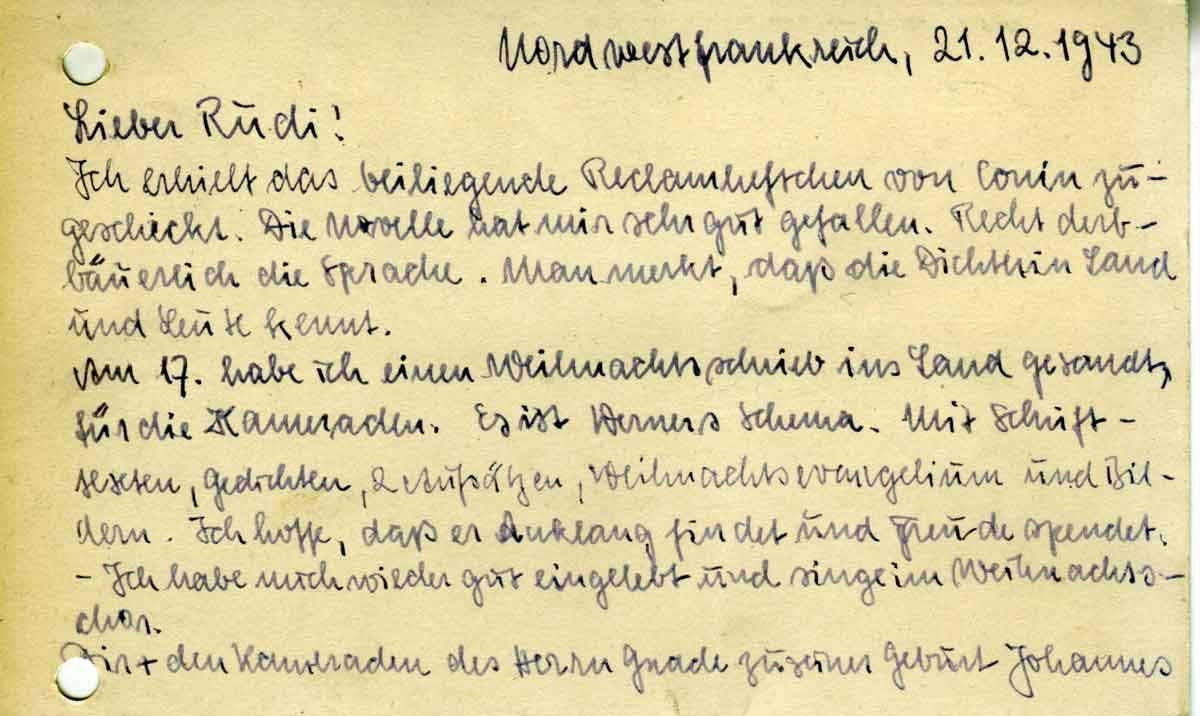 Nordwestfrankreich, 21.12.1943
Lieber Rudi!
Ich erhielt das beiliegende Reclamheftchen von Conin zu-
geschickt. Die Novelle hat mir sehr gut gefallen. Recht derb-
bäuerlich die Sprache. Man merkt, daß die Dichterin Land
und Leute kennt.
Am 17. habe ich einen Weihnachtsschrieb ins Land gesandt,
für die Kameraden. Es ist Werners Schema. Mit Schrift-
texten, Gedichten, 2 Aufsätzen, Weihnachtsevangelium und Bil-
dern. Ich hoffe, daß er Anklang findet und Freude spendet.
- Ich habe mich wieder gut eingelebt und singe im Weihnachts-
chor.
Dir + den Kameraden des Herrn Gnade zu seiner Geburt Johannes